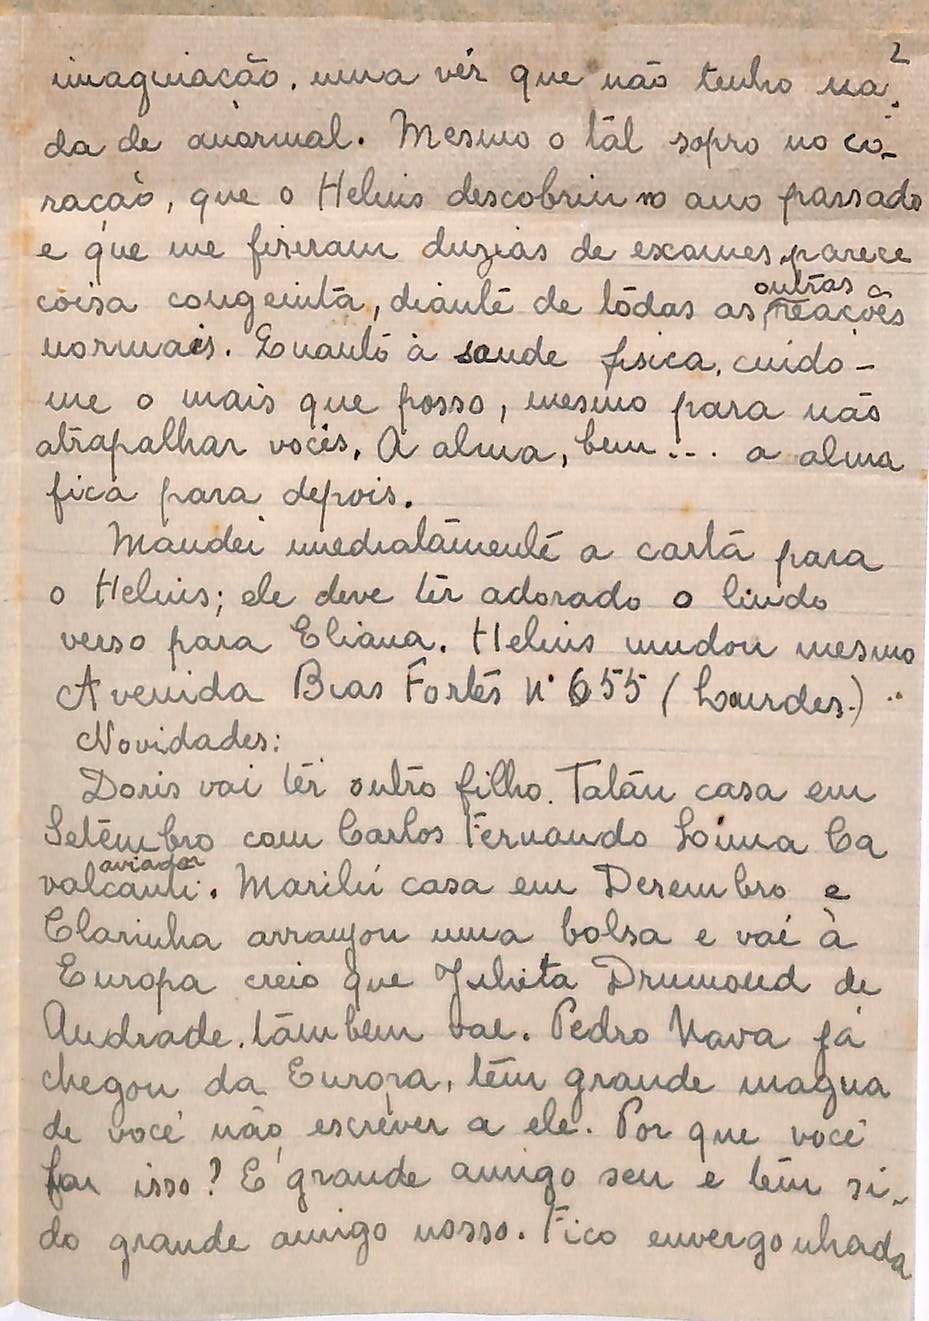 2
imaginação, uma vêr que não tenho na-
da de anórmal. Mesmo o tál sopro no co-
ração, que o Helius descobriu no ano passado
e que me fizeram duzias de exames, parece
coisa congenita, diante de tôdas as outras reações
normais. Quanto à saude fisica, cuido-
me o mais que posso, mesmo para não
atrapalhar vocês. A alma, bem... a alma
fica para depois.
Mandei imediatamente a carta para
o Helius; ele deve ter adorado o lindo
verso para Eliana. Helius mudou mesmo
Avenida Bias Fortes nº 655 (Lourdes.)
Novidades:
Doris vai têr outro filho. Tatáu casa em
Setembro com Carlos Fernando Loima Ca
valcanti. aviador Marilú casa em Dezembro e
Clarinha arranjou uma bolsa e vai à
Europa creio que Julieta Drumond de
Andrade, tâmbem vae. Pedro Nava já
chegou da Europa, têm grande magua
de você não escrever a ele. Por que você
faz isso? E' grande amigo seu e têm si-
do grande amigo nosso. Fico envergonhada